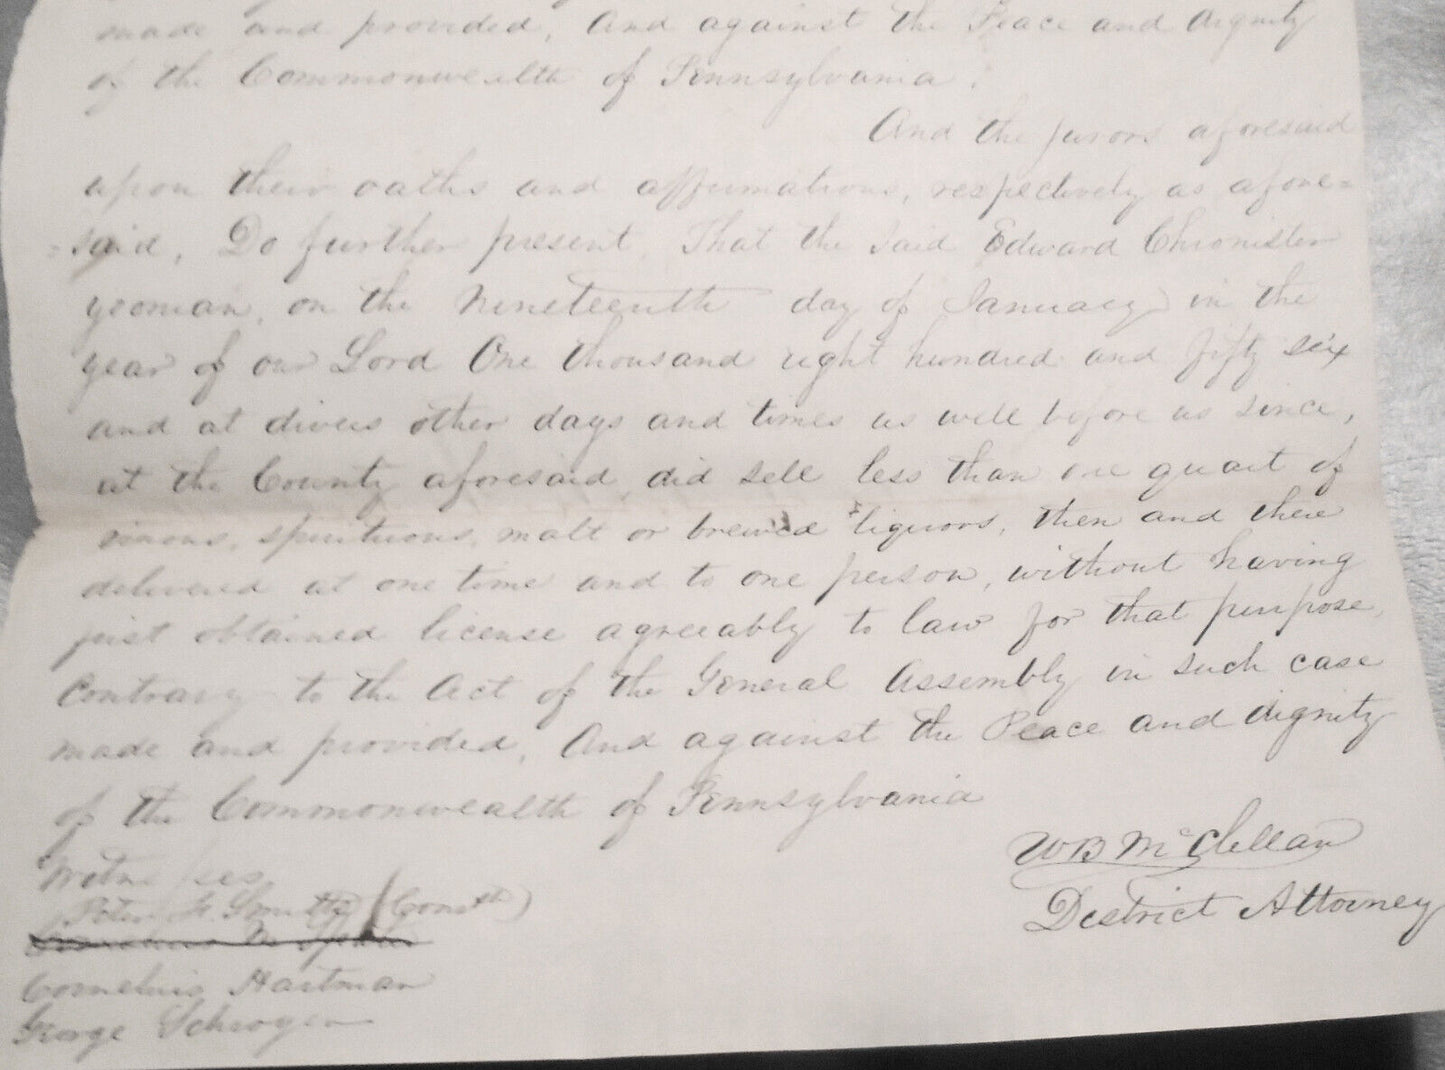 made and provided, And against the Peace and dignity
of the Commonwealth of Pennsylvania.
And the jurors aforesaid
upon their oaths and affirmations, respectively as afore=
=said, Do further present, That the said Edward Chronister
yeoman, on the Nineteenth day of January in the
year of our Lord One thousand eight hundred and fifty six
and at divers other days and times as well before as since,
at the County aforesaid, did sell less than one quart of
vinous, spirituous, malt or brewed liquors, then and there
delivered at one time and to one person, without having
first obtained license agreeably to law for that purpose,
Contrary to the Act of the General Assembly in such case
made and provided, And against the Peace and dignity
of the Commonwealth of Pennsylvania
WB McClellan
District Attorney
Witnesses
Peter (Consth)
Cornelius Hartman
George